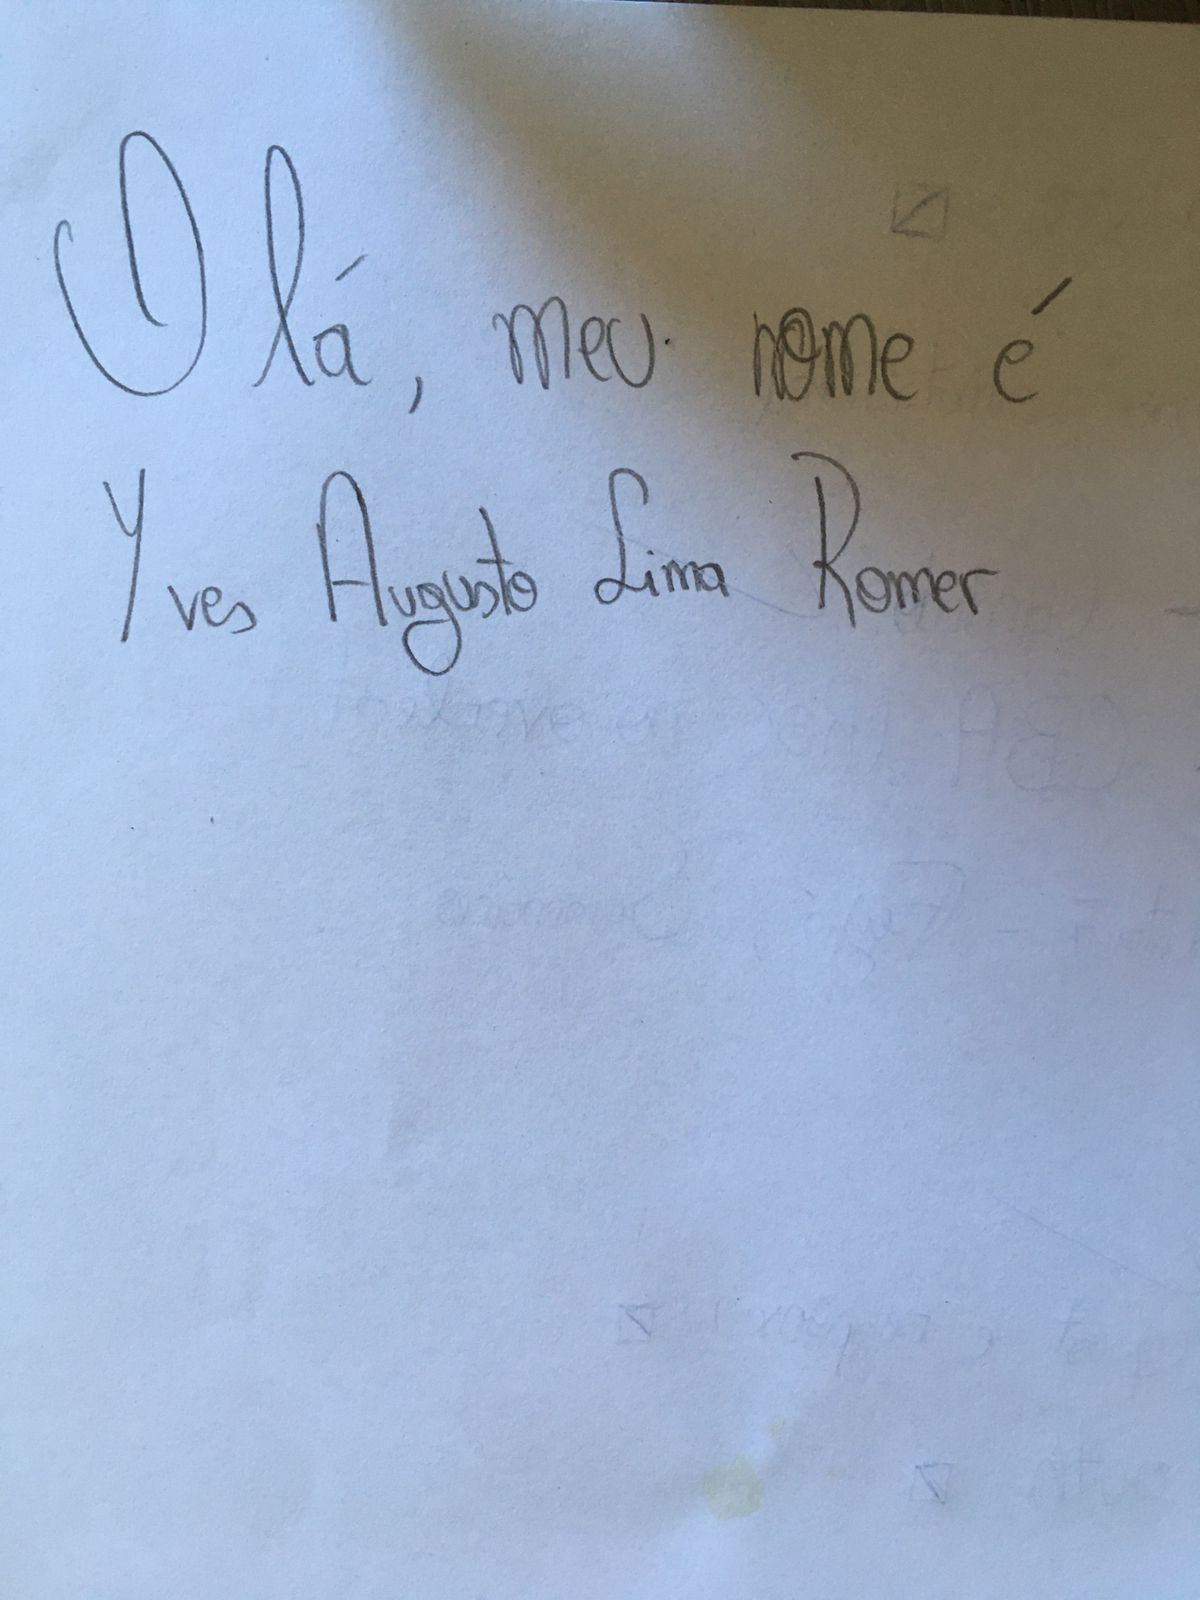 Olá, meu nome é
Yves Augusto Lima Romer